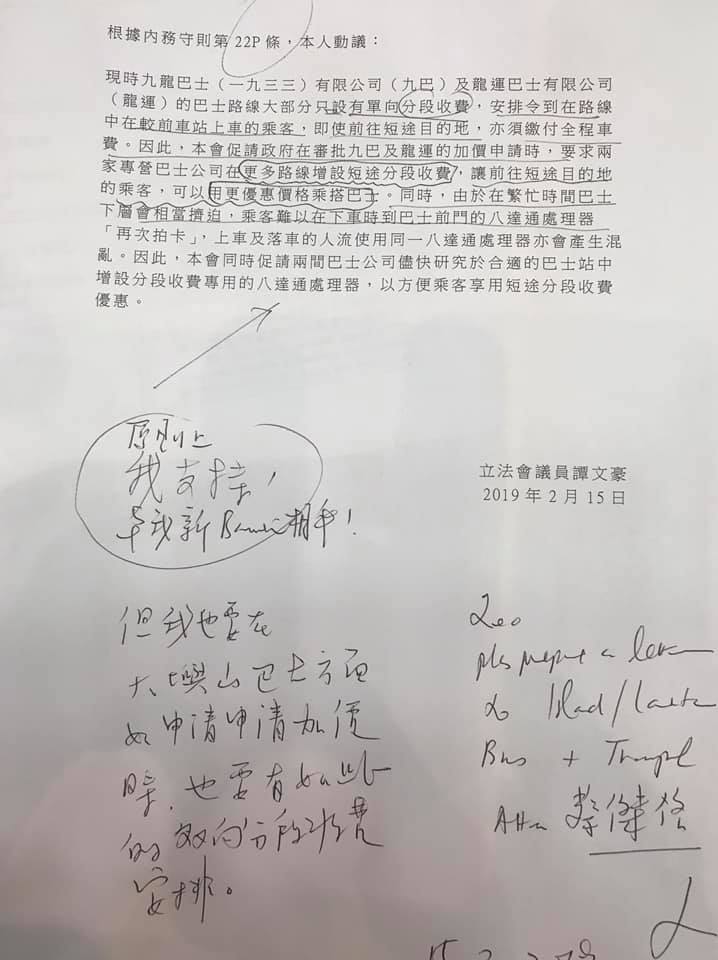 根據內務守則第 22P 條，本人動議：
現時九龍巴士（一九三三）有限公司（九巴）及龍運巴士有限公司
（龍運）的巴士路線大部分只設有單向分段收費，安排令到在路線
中在較前車站上車的乘客，即使前往短途目的地，亦須繳付全程車
費。因此，本會促請政府在審批九巴及龍運的加價申請時，要求兩
家專營巴士公司在更多路線增設短途分段收費，讓前往短途目的地
的乘客，可以用更優惠價格乘搭巴士。同時，由於在繁忙時間巴士
下層會相當擠迫，乘客難以在下車時到巴士前門的八達通處理器
「再次拍卡」，上車及落車的人流使用同一八達通處理器亦會產生混
亂。因此，本會同時促請兩間巴士公司儘快研究於合適的巴士站中
增設分段收費專用的八達通處理器，以方便乘客享用短途分段收費
優惠。
原則上
我支持！
立法會議員譚文豪
2019 年 2 月 15 日
但我也要在
大嶼山巴士方面
如申請申請加價
時，也要有如此
的双向分段收費
安排。
Leo
pls prepare a letter
to
Bus +
Attn 蔡傑